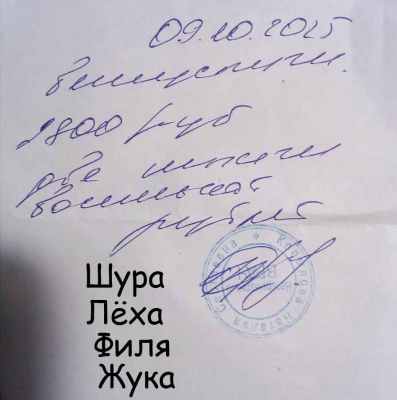 09.10.2025
Ветуслуги.
2800 руб
две тысячи
восемьсот
рублей
Шура
Лёха
Филя
Жука